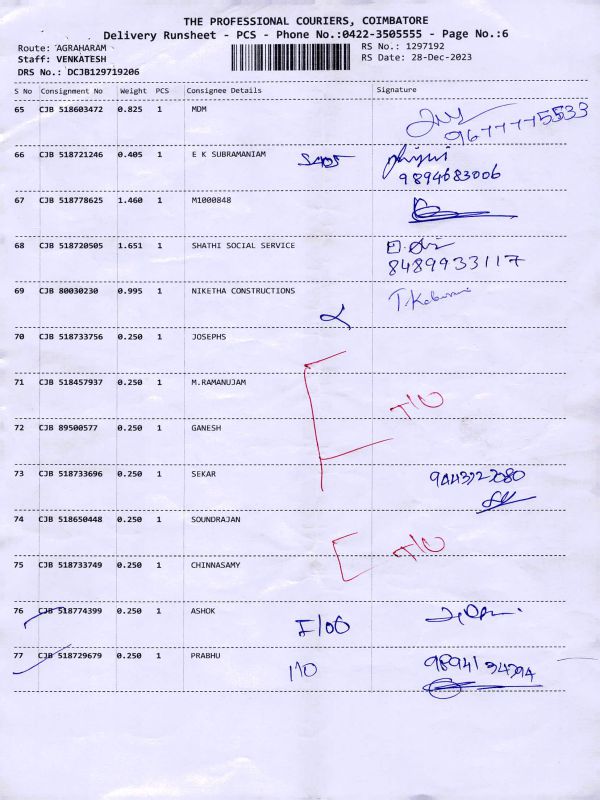 THE PROFESSIONAL COURIERS, COIMBATORE
Delivery Runsheet - PCS - Phone No.:0422-3505555 - Page No.:6
Route: AGRAHARAM RS No.: 1297192
Staff: VENKATESH RS Date: 28-Dec-2023
DRS No.: DCJB129719206
S No Consignment No Weight PCS Consignee Details Signature
65 CJB 518603472 0.825 1 MDM
9677775533
66 CJB 518721246 0.405 1 E K SUBRAMANIAM
9894683006
67 CJB 518778625 1.460 1 M1000848
68 CJB 518720505 1.651 1 SHATHI SOCIAL SERVICE
8489933117
69 CJB 80030230 0.995 1 NIKETHA CONSTRUCTIONS
70 CJB 518733756 0.250 1 JOSEPHS
71 CJB 518457937 0.250 1 M.RAMANUJAM
T/O
72 CJB 89500577 0.250 1 GANESH
73 CJB 518733696 0.250 1 SEKAR
74 CJB 518650448 0.250 1 SOUNDRAJAN
T/O
75 CJB 518733749 0.250 1 CHINNASAMY
76 CJB 518774399 0.250 1 ASHOK
77 CJB 518729679 0.250 1 PRABHU
110 9894134394